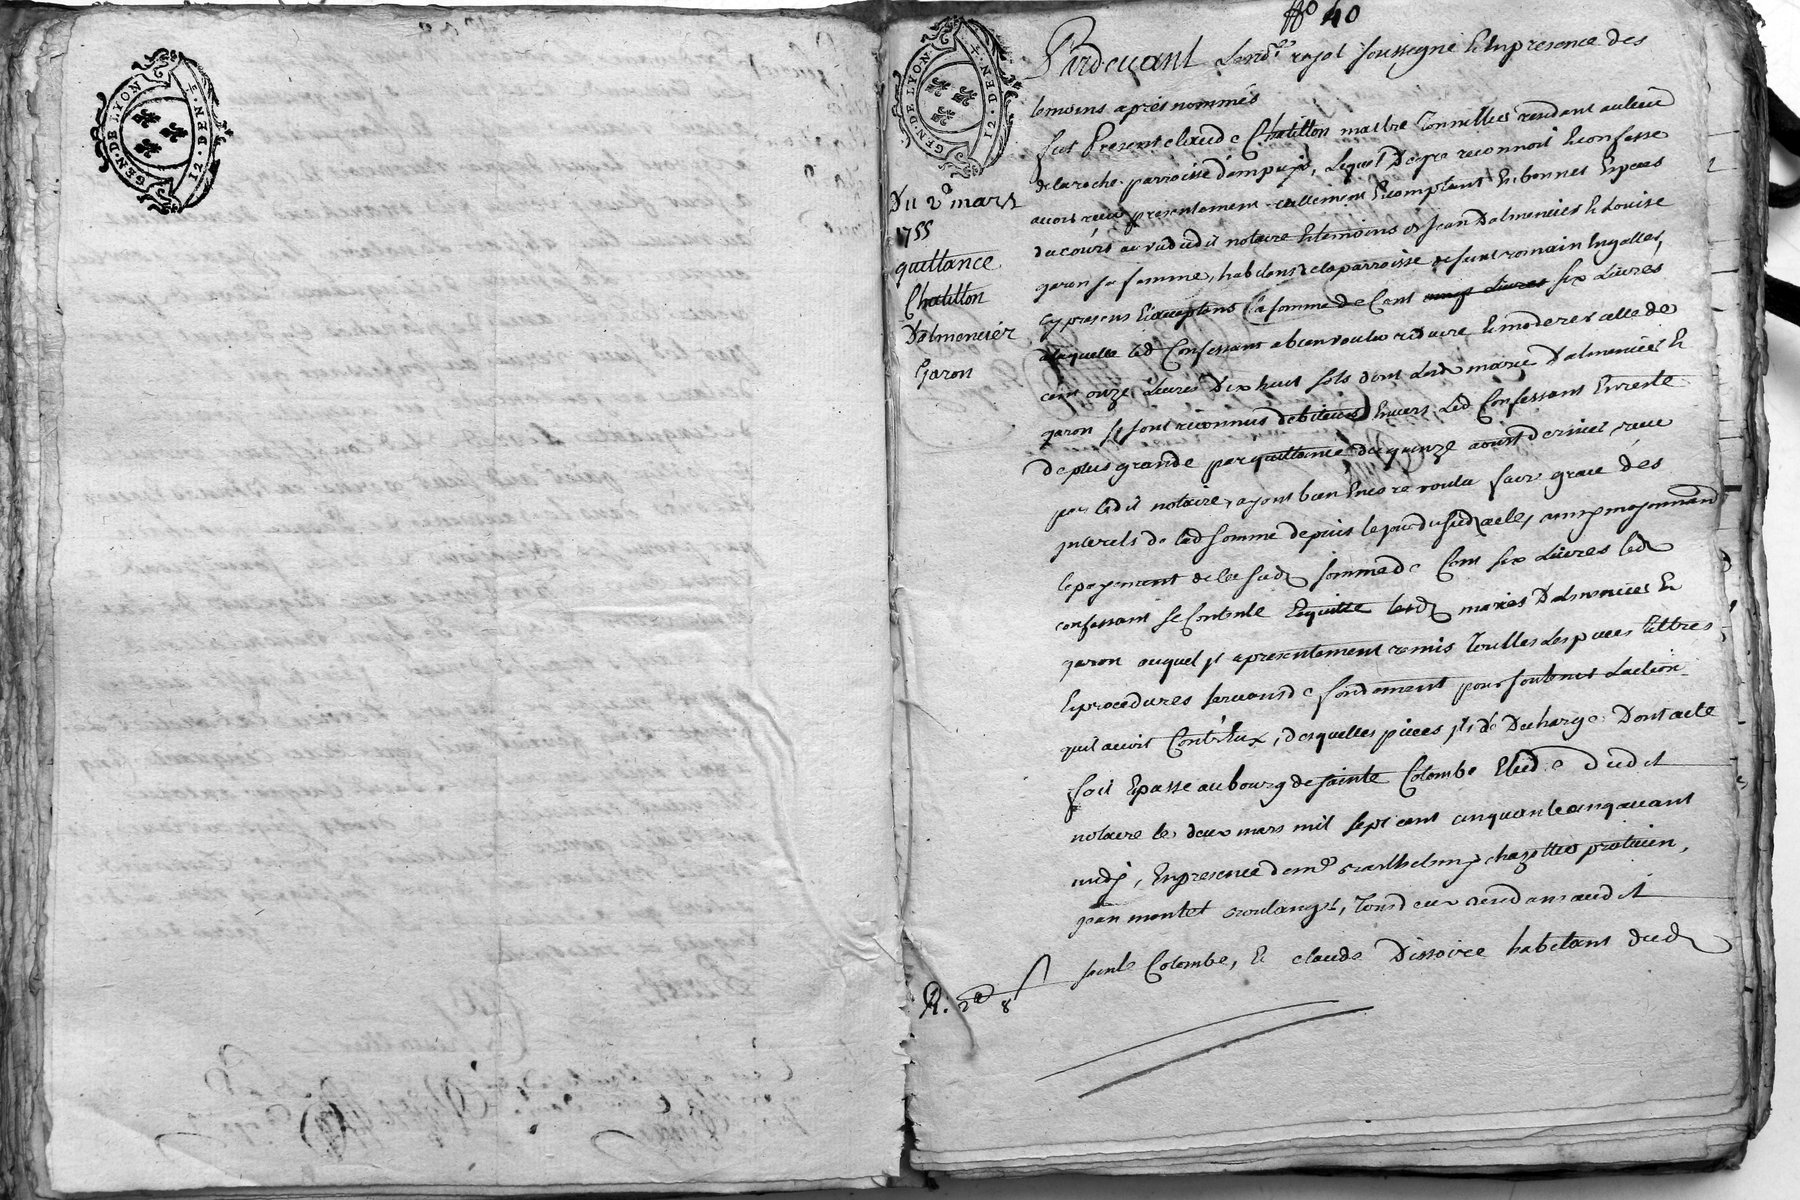 GEN. DE LYON
12. DEN.
N.º 40
GEN. DE LYON
12. DEN.
Du 2e mars
1755
quittance
Chatillon
Dalmencier
Garon
Pardevant Le nore royal soussigné & en presence des
temoins apres nommés
fut Present claude Chatillon maitre Tonnellier resident au lieu
de la roche parroisse d'ampuis, Lequel De gre reconnoit & confesse
avoir reçu presentement reellement & comptant en bonnes especes
du cours au vu dudit notaire & temoins de Jean Dalmencier & Louise
garon sa femme, habitans de la parroisse de saint romain en galles,
cy presens & acceptans La somme de Cent six Livres
a laquelle led Confessant a bien voulu reduire & moderer celle de
cent onze Livres Dix huit sols dont Lesd mariés Dalmencier &
garon se sont reconnus debiteurs Envers Led Confessant En reste
de plus grande par quittance du quinze aoust dernier reçue
par ledit notaire, ayant bien Encore voulu faire grace des
interets de lad somme depuis le jour du susd acte, au moyennand
le payement de la susd somme de Cent six Livres led
confessant se Contente & quitte lesd mariés Dalmencier &
garon auquel il a presentement remis Touttes Les pieces Tiltres
& procedures servans de fondement pour soutenir L'action
quil avoit Contr'Eux, desquelles pieces ils Le Decharge Dont acte
fait & passé au bourg de sainte Colombe Etude dudit
notaire le deux mars mil sept cent cinquante cinq avant
midy, En presence de mre Barthelemy chazottes praticien,
jean montet Boulanger, Tous deux residans audit
sainte Colombe, & claude Dissoire habitant dud
R. 2d 8s